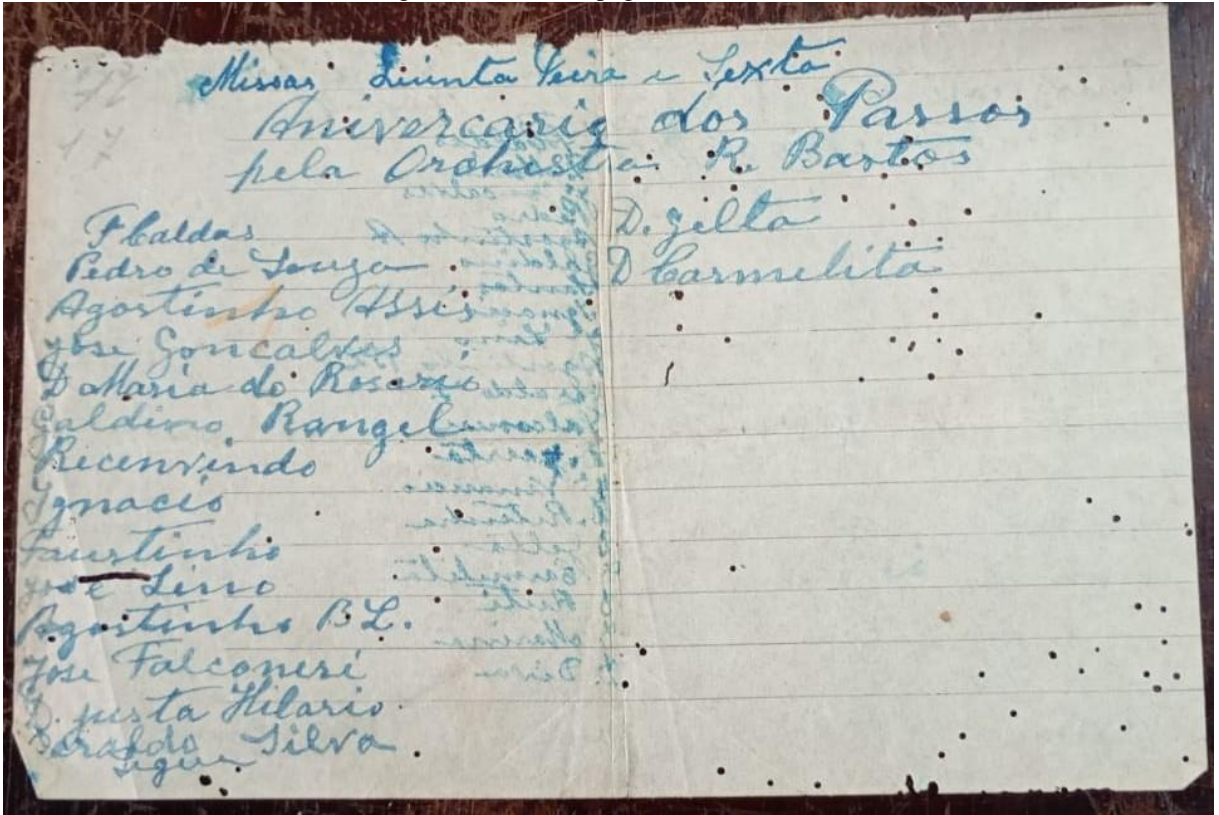 Missas Quinta Feira e Sexta
Anivercario dos Passos
pela Orchesta R. Bastos
F Caldas
Pedro de Souza
Agostinho Assis
José Goncalves
D Maria do Rosario
Galdino Rangel
Recenvindo
Ignacio
Faustinho
José Lino
Agostinho B L.
José Falconeri
D. justa Hilario
Geraldo Silva
Segue
D. Zelta
D Carmelita